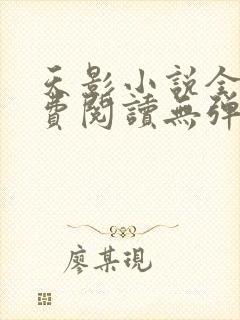 天影小说全
費閱讀無彈
廖某現